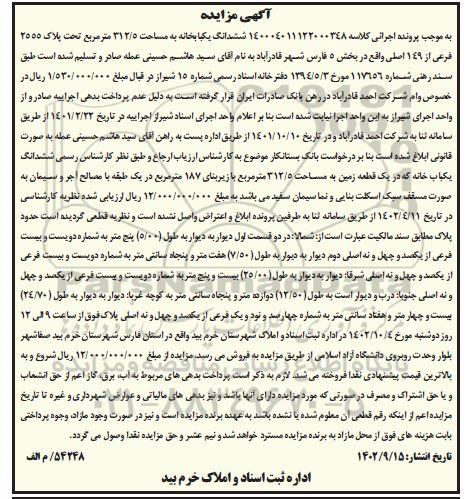 آگهی مزایده
به موجب پرونده اجرائی کلاسه ۱۴۰۰۰۴۰۱۱۱۲۲۰۰۰۳۴۸ ششدانگ یکبابخانه به مساحت ۳۱۲/۵ مترمربع تحت پلاک ۲۵۵۵
فرعی از ۱۴۹ اصلی واقع در بخش ۵ فارس شهر قادرآباد به نام اقای سید هاشم حسینی عمله صادر و تسلیم شده است طبق
سند رهنی شماره ۱۱۷۳۵۶ مورخ ۱۳۹۴/۵/۳ دفترخانه اسناد رسمی شماره ۱۵ شیراز در قبال مبلغ ۱/۵۳۰/۰۰۰/۰۰۰ ریال در
خصوص وام شرکت احمد قادرآباد در رهن بانک صادرات ایران قرار گرفته است به دلیل عدم پرداخت بدهی اجراییه صادر و از
واحد اجرای شیراز به این واحد اجرا نیابت شده است بنا بر اعلام واحد اجرای اسناد شیراز اجراییه در تاریخ ۱۴۰۱/۲/۲۲ از طریق
سامانه ثنا به شرکت احمد قادرآباد و در تاریخ ۱۴۰۱/۱۰/۱۰ از طریق اداره پست به راهن آقای سید هاشم حسینی عمله به صورت
قانونی ابلاغ شده است بنا بر درخواست بانک بستانکار موضوع به کارشناس ارزیاب ارجاع و طبق نظر کارشناس رسمی ششدانگ
یکباب خانه که در یک قطعه زمین به مساحت ۳۱۲/۵ مترمربع با زیربنای ۱۸۷ مترمربع در یک طبقه با مصالح آجر و سیمان به
صورت مسقف سبک اسکلت بنایی و نما سیمان سفید می باشد به مبلغ ۱۲/۰۰۰/۰۰۰/۰۰۰ ریال ارزیابی شده نظریه کارشناسی
در تاریخ ۱۴۰۲/۴/۱۱ از طریق سامانه ثنا به طرفین پرونده ابلاغ و اعتراض واصل نشده است و نظریه قطعی گردیده است حدود
پلاک مطابق سند مالکیت عبارت است از: شمالا: در دو قسمت اول دیوار به دیوار به طول (۵/۰۰) پنج متر به شماره دویست و بیست
فرعی از یکصد و چهل و نه اصلی دوم دیوار به دیوار به طول (۷/۵۰) هفت متر و پنجاه سانتی متر به شماره دویست و بیست فرعی
از یکصد و چهل و نه اصلی شرقا: دیوار به دیوار به طول (۲۵/۰۰) بیست و پنج متر به شماره دویست و بیست فرعی از یکصد و چهل
و نه اصلی جنوبا: درب و دیوار است به طول (۱۲/۵۰) دوازده متر و پنجاه سانتی متر به کوچه غربا: دیوار به دیوار به طول (۲۴/۷۰)
بیست و چهار متر و هفتاد سانتی متر به شماره چهارصد و نود و یک فرعی از یکصد و چهل و نه اصلی پلاک فوق از ساعت ۹ الی ۱۲
روز دوشنبه مورخ ۱۴۰۲/۱۰/۴ در اداره ثبت اسناد و املاک شهرستان خرم بید واقع در استان فارس شهرستان خرم بید صفاشهر
بلوار وحدت روبروی دانشگاه آزاد اسلامی از طریق مزایده به فروش می رسد. مزایده از مبلغ ۱۲/۰۰۰/۰۰۰/۰۰۰ ریال شروع و به
بالاترین قیمت پیشنهادی نقدا فروخته می شد. لازم به ذکر است پرداخت بدهی های مربوط به آب، برق، گاز اعم از حق انشعاب
و یا حق اشتراک و مصرف در صورتی که مورد مزایده دارای آنها باشد و نیز بدهی های مالیاتی و عوارض شهرداری و غیره تا تاریخ
مزایده اعم از اینکه رقم قطعی آن معلوم شده یا نشده باشد به عهده برنده مزایده است و نیز در صورت وجود مازاد، وجوه پرداختی
بابت هزینه های فوق از محل مازاد به برنده مزایده مسترد خواهد شد و نیم عشر و حق مزایده نقدا وصول می گردد.
تاریخ انتشار: ۱۴۰۲/۹/۱۵
۵۴۲۴۸/ م الف
اداره ثبت اسناد و املاک خرم بید